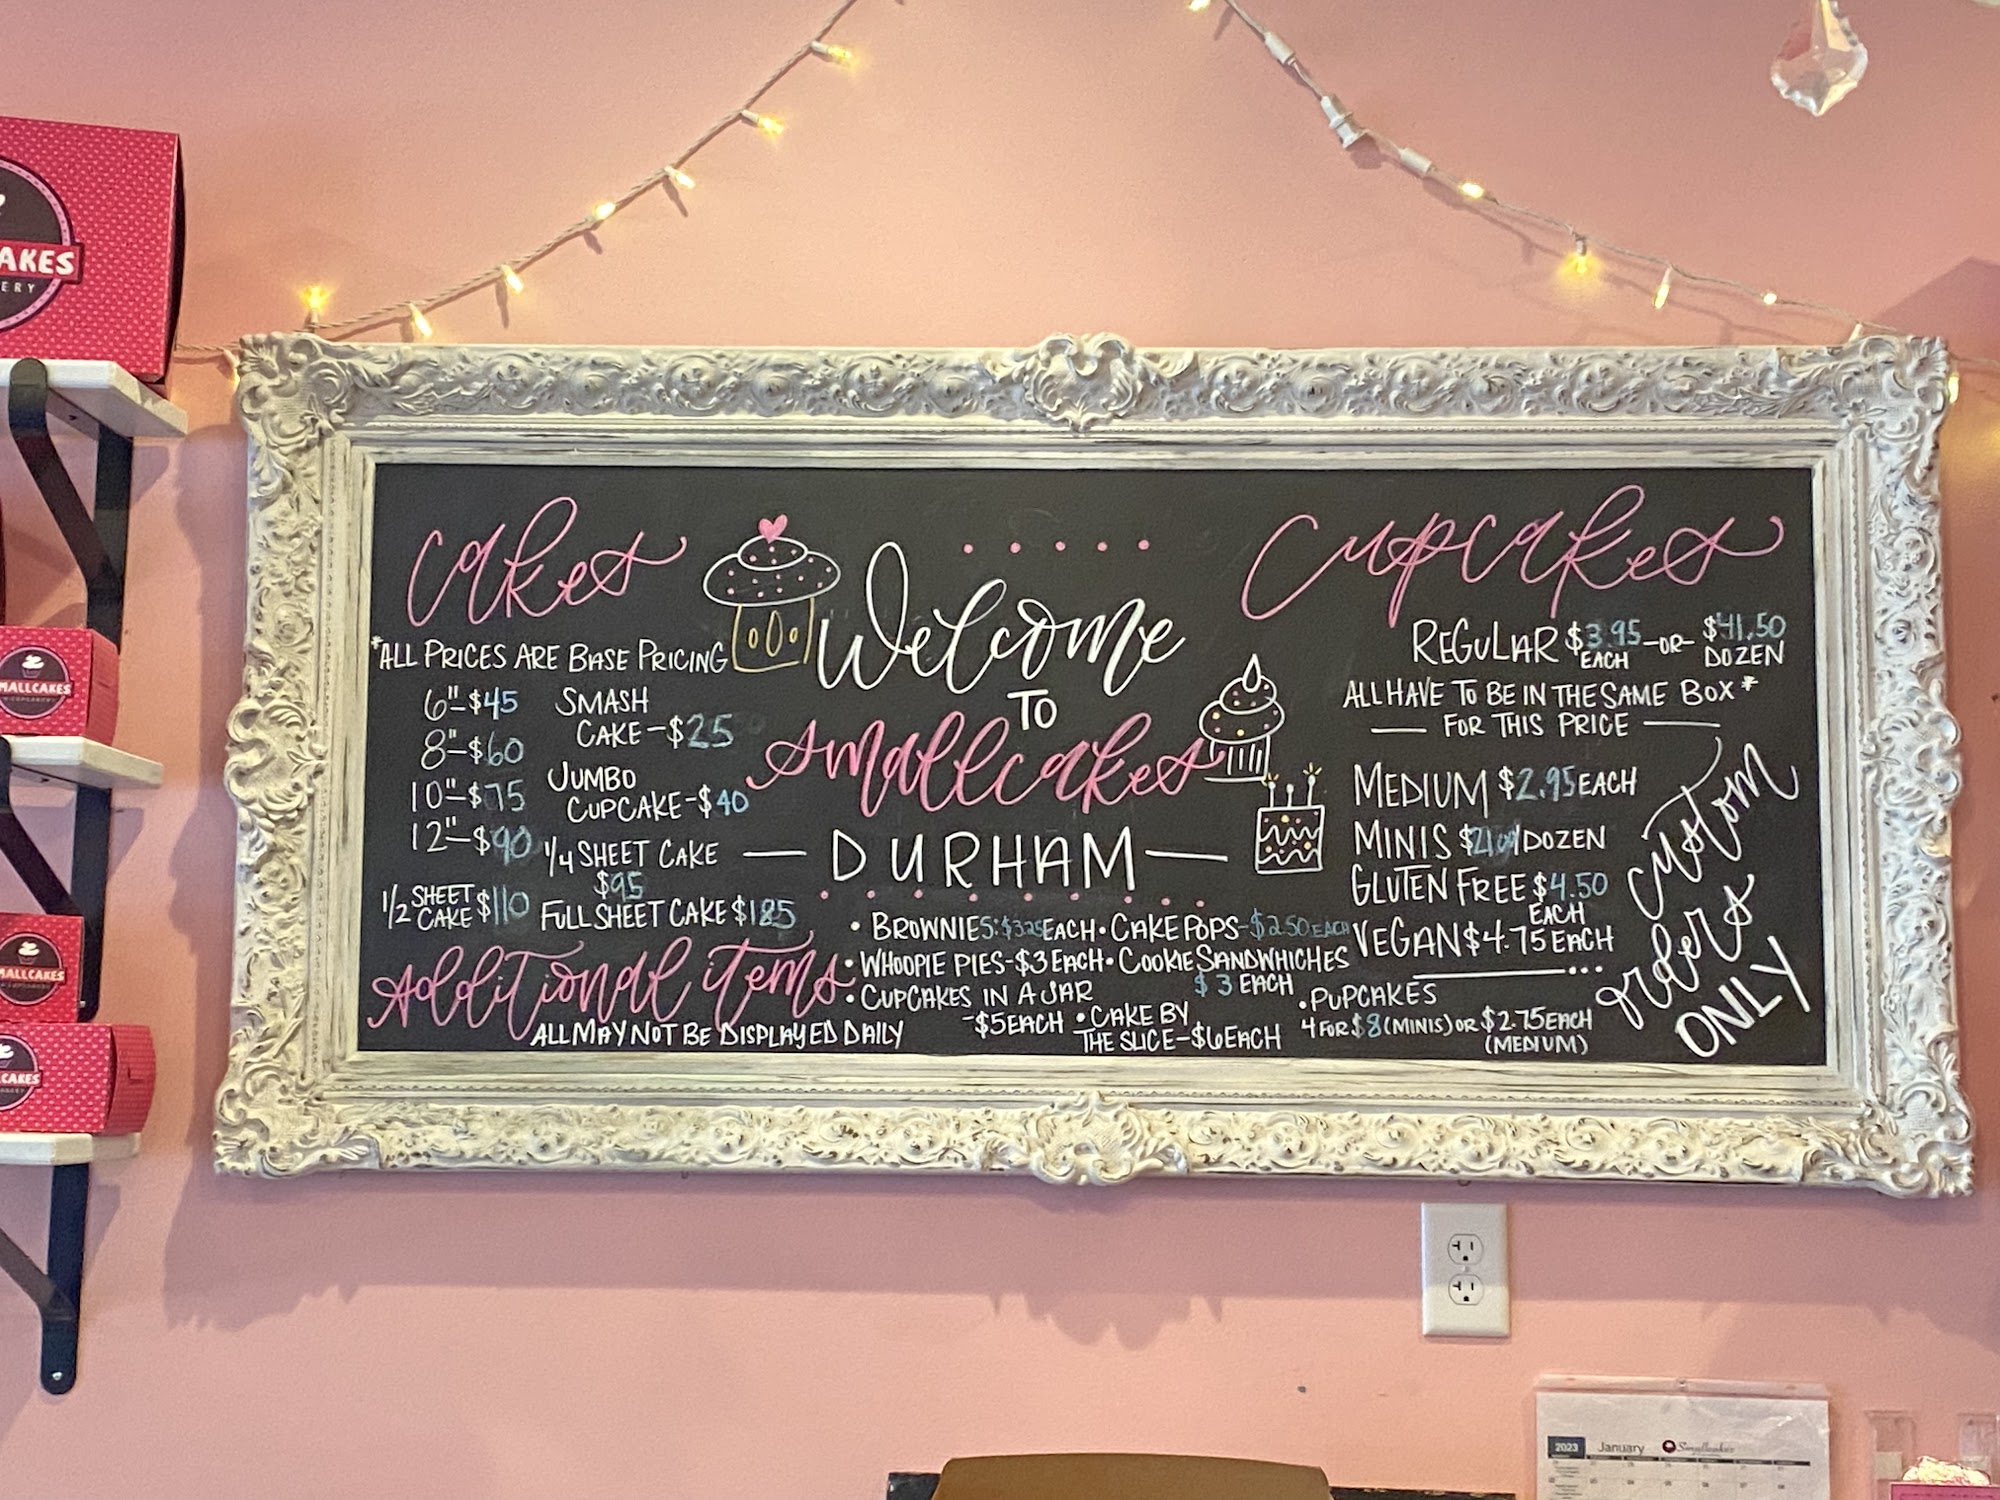 Cakes
*ALL PRICES ARE BASE PRICING
6"-$45
8"-$60
10"-$75
12"-$90
1/2 SHEET CAKE $110
SMASH
CAKE-$25
JUMBO
CUPCAKE-$40
1/4 SHEET CAKE
$95
FULL SHEET CAKE $185
Welcome
TO
Smallcakes
— DURHAM —
Cupcakes
REGULAR $3.95 EACH -OR- $41.50 DOZEN
ALL HAVE TO BE IN THE SAME BOX*
— FOR THIS PRICE —
MEDIUM $2.95 EACH
MINIS /DOZEN
GLUTEN FREE $4.50
EACH
VEGAN $4.75 EACH
custom
orders
ONLY
Additional items
ALL MAY NOT BE DISPLAYED DAILY
• BROWNIES: $3.25 EACH • CAKE POPS-$2.50 EACH
• WHOOPIE PIES-$3 EACH • COOKIE SANDWHICHES
$3 EACH
• CUPCAKES IN A JAR
-$5 EACH
• CAKE BY
THE SLICE-$6 EACH
• PUPCAKES
4 FOR $8 (MINIS) OR $2.75 EACH
(MEDIUM)
AKES
ERY
MALLCAKES
MALLCAKES
CAKES
2023 January Smallcakes